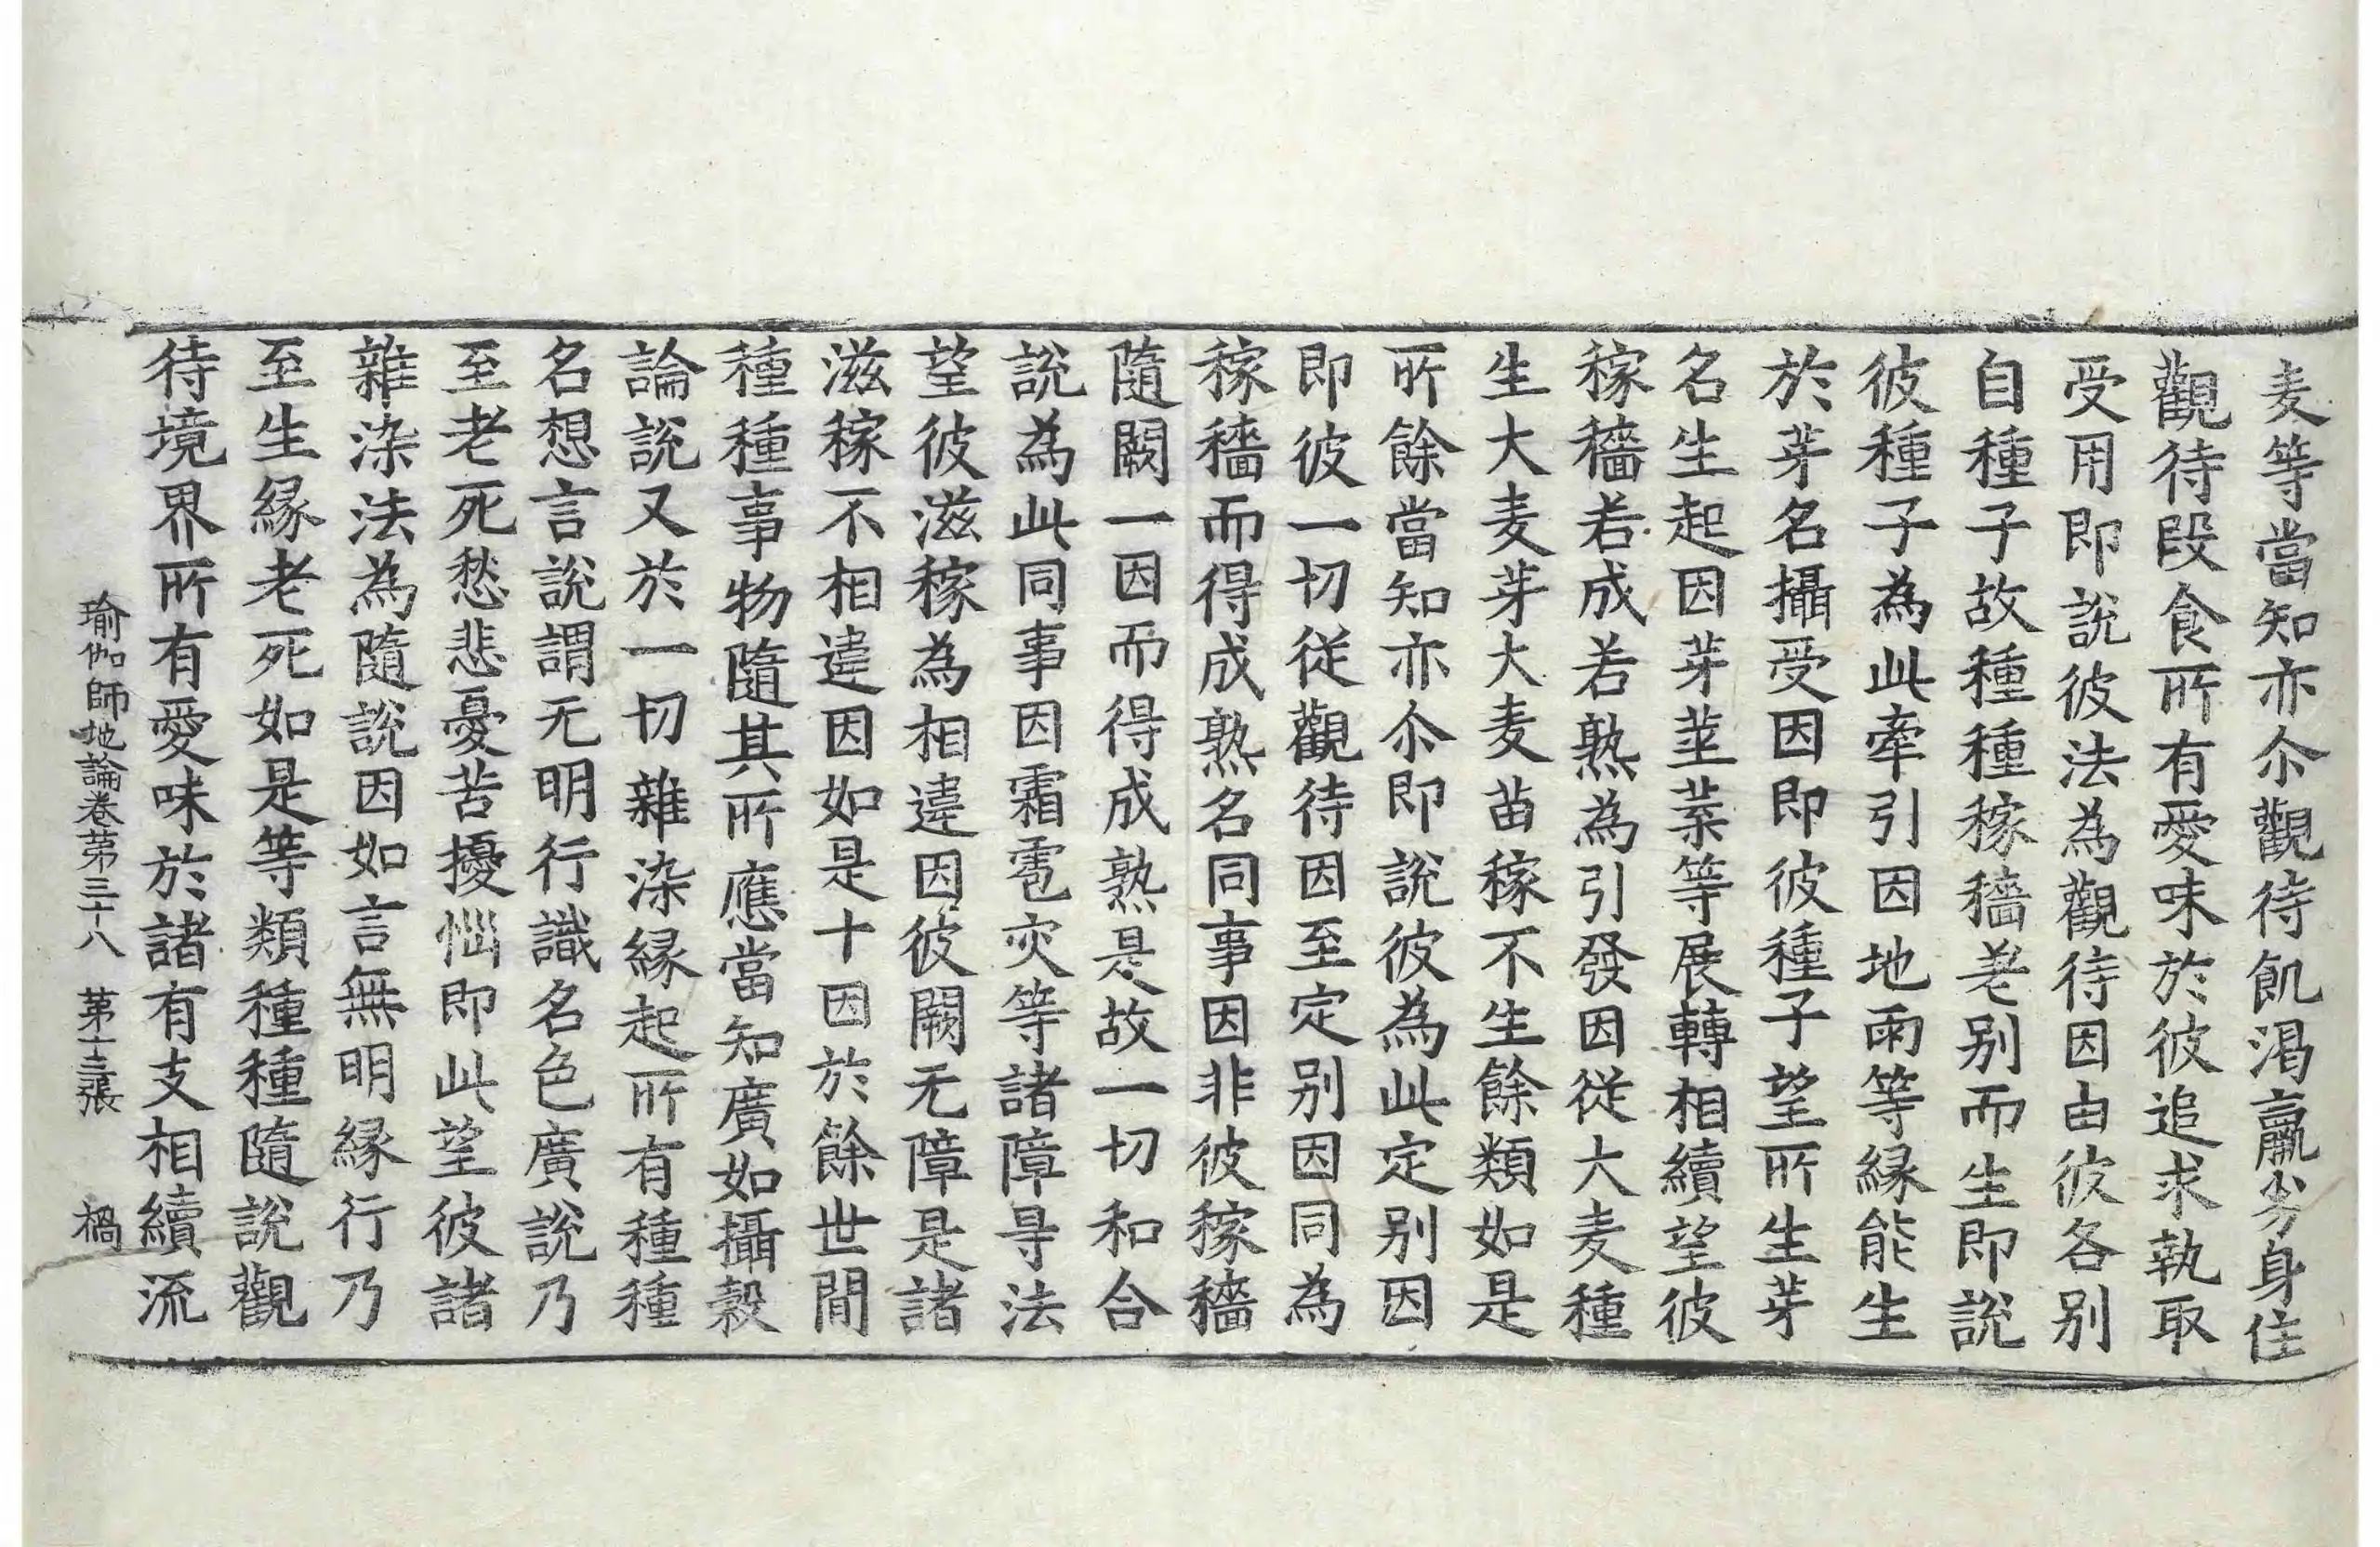 麦等當知亦尒觀待飢渴羸劣身住
觀待段食所有愛味於彼追求執取
受用即說彼法為觀待因由彼各別
自種子故種種稼穡差別而生即說
彼種子為此牽引因地雨等縁能生
於芽名攝受因即彼種子望所生芽
名生起因芽莖葉等展轉相續望彼
稼穡若成若熟為引發因從大麦種
生大麦芽大麦苗稼不生餘類如是
所餘當知亦尒即說彼為此定別因
即彼一切從觀待因至定別因同為
稼穡而得成熟名同事因非彼稼穡
隨闕一因而得成熟是故一切和合
說為此同事因霜雹灾等諸障㝵法
望彼滋稼為相違因彼闕无障是諸
滋稼不相違因如是十因於餘世間
種種事物隨其所應當知廣如攝穀
論說又於一切雜染縁起所有種種
名想言說謂无明行識名色廣說乃
至老死愁悲憂苦擾惱即此望彼諸
雜染法為隨說因如言無明縁行乃
至生縁老死如是等類種種隨說觀
待境界所有愛味於諸有支相續流
瑜伽師地論卷第三十八 第十三張 禍